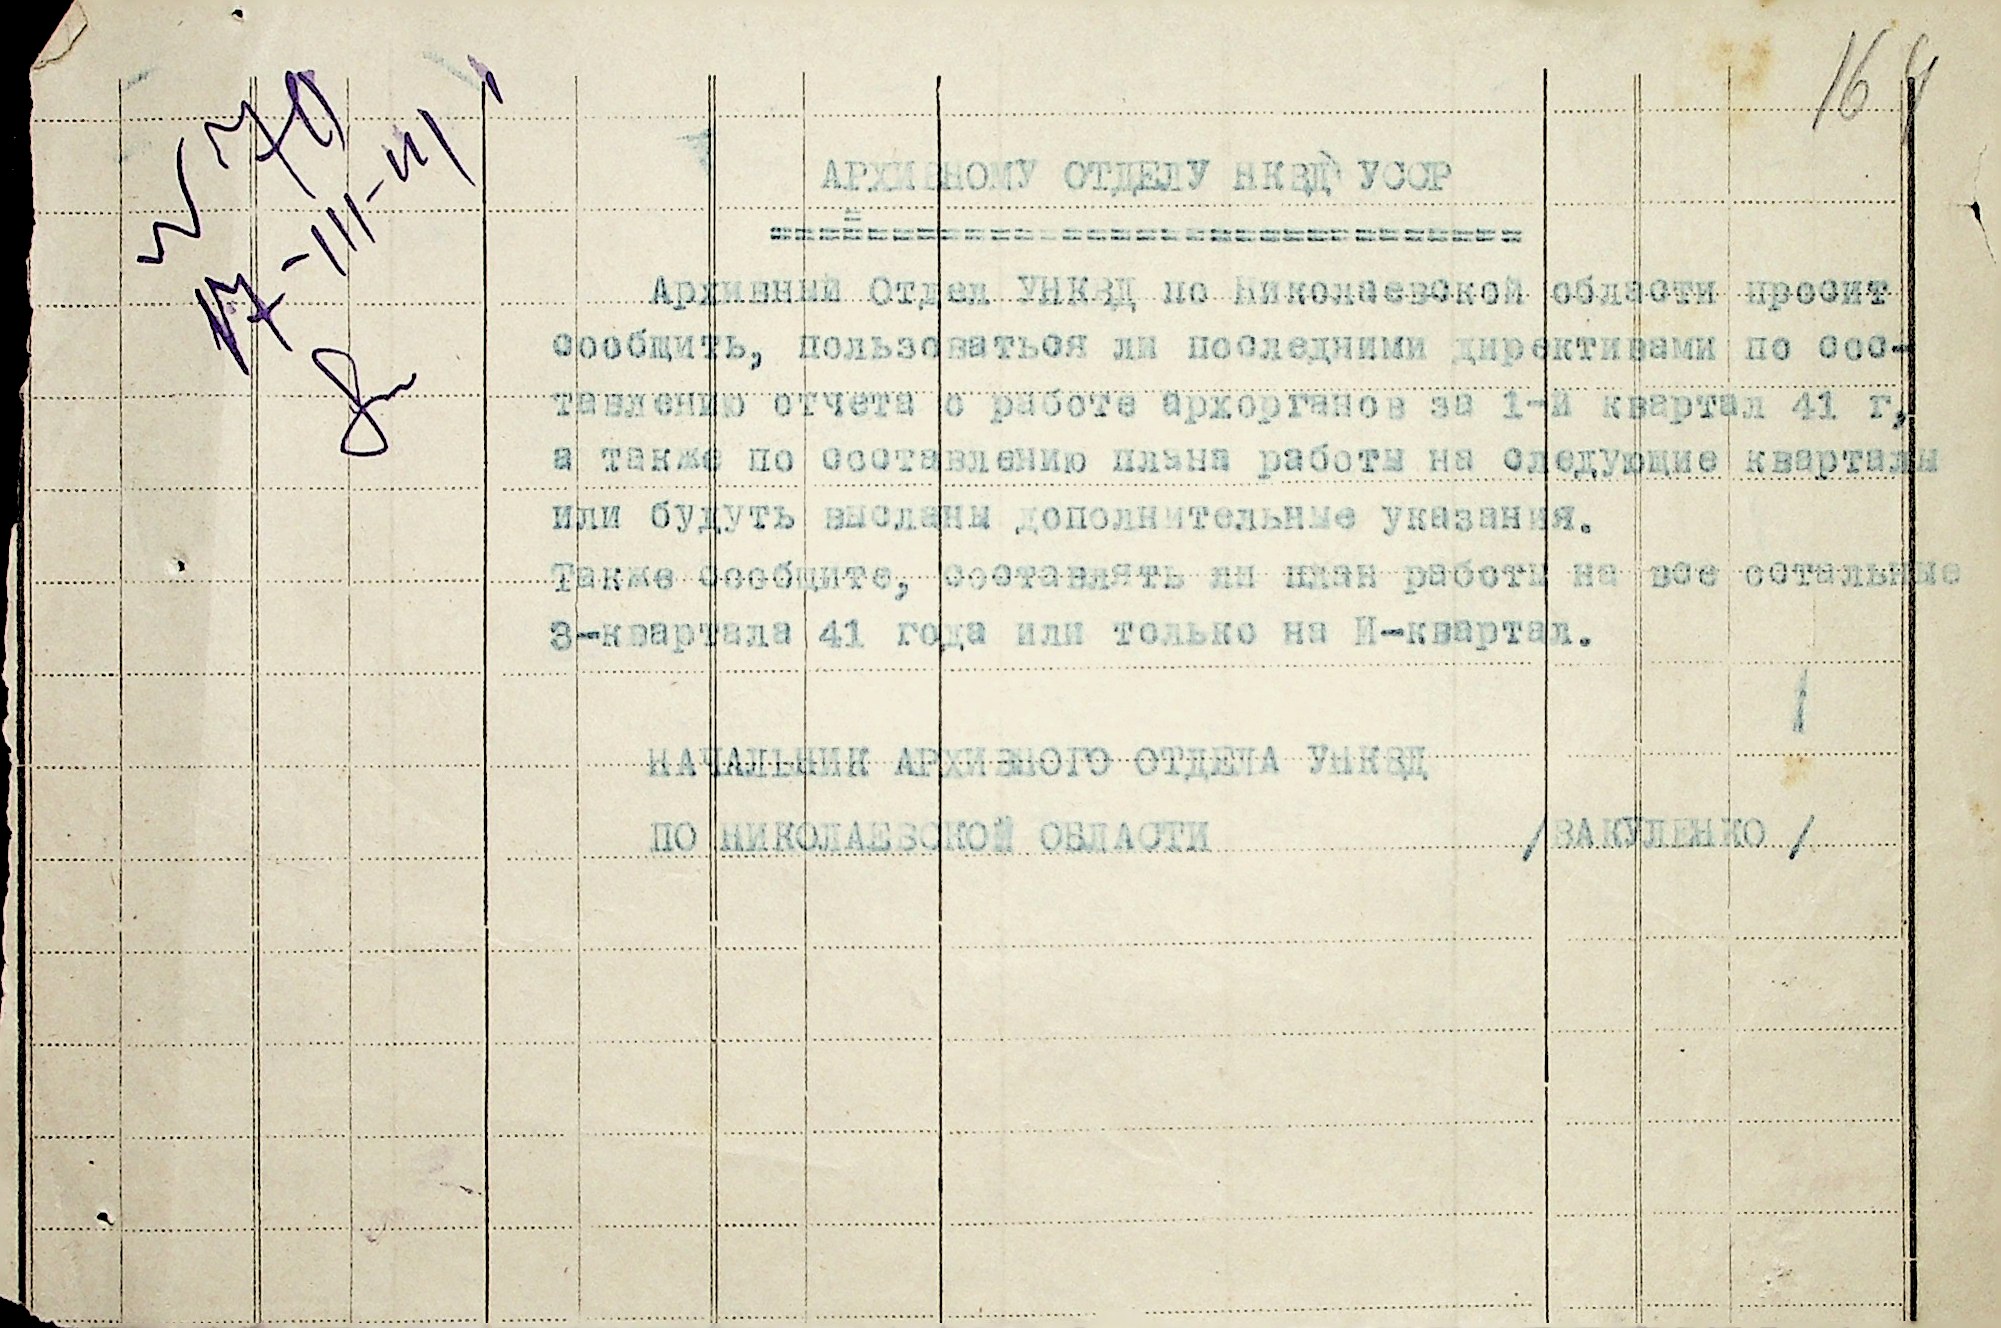 16
№ 70
17-III-41
АРХИВНОМУ ОТДЕЛУ НКВД УССР
Архивный Отдел УНКВД по Николаевской области просит
сообщить, пользоваться ли последними директивами по сос-
тавлению отчета о работе архорганов за 1-й квартал 41 г,
а также по составлению плана работы на следующие кварталы
или будуть высланы дополнительные указания.
Также сообщите, составлять ли план работы на все остальные
3-квартала 41 года или только на П-квартал.
НАЧАЛЬНИК АРХИВНОГО ОТДЕЛА УНКВД
ПО НИКОЛАЕВСКОЙ ОБЛАСТИ /ВАКУЛЕНКО/